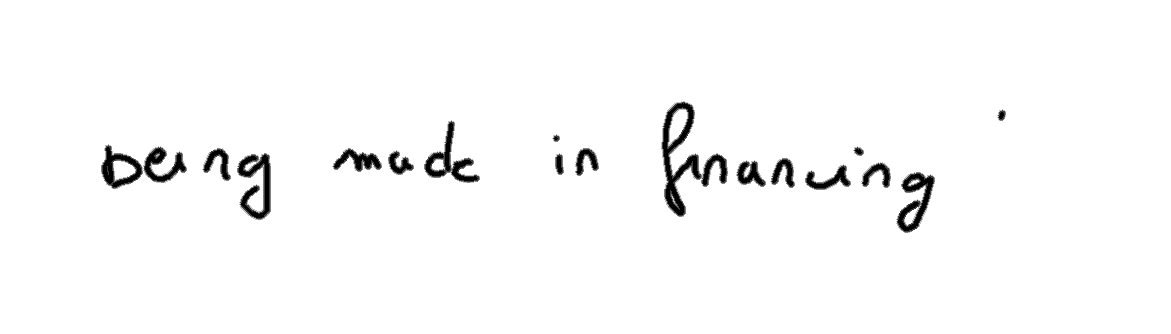 being made in financing